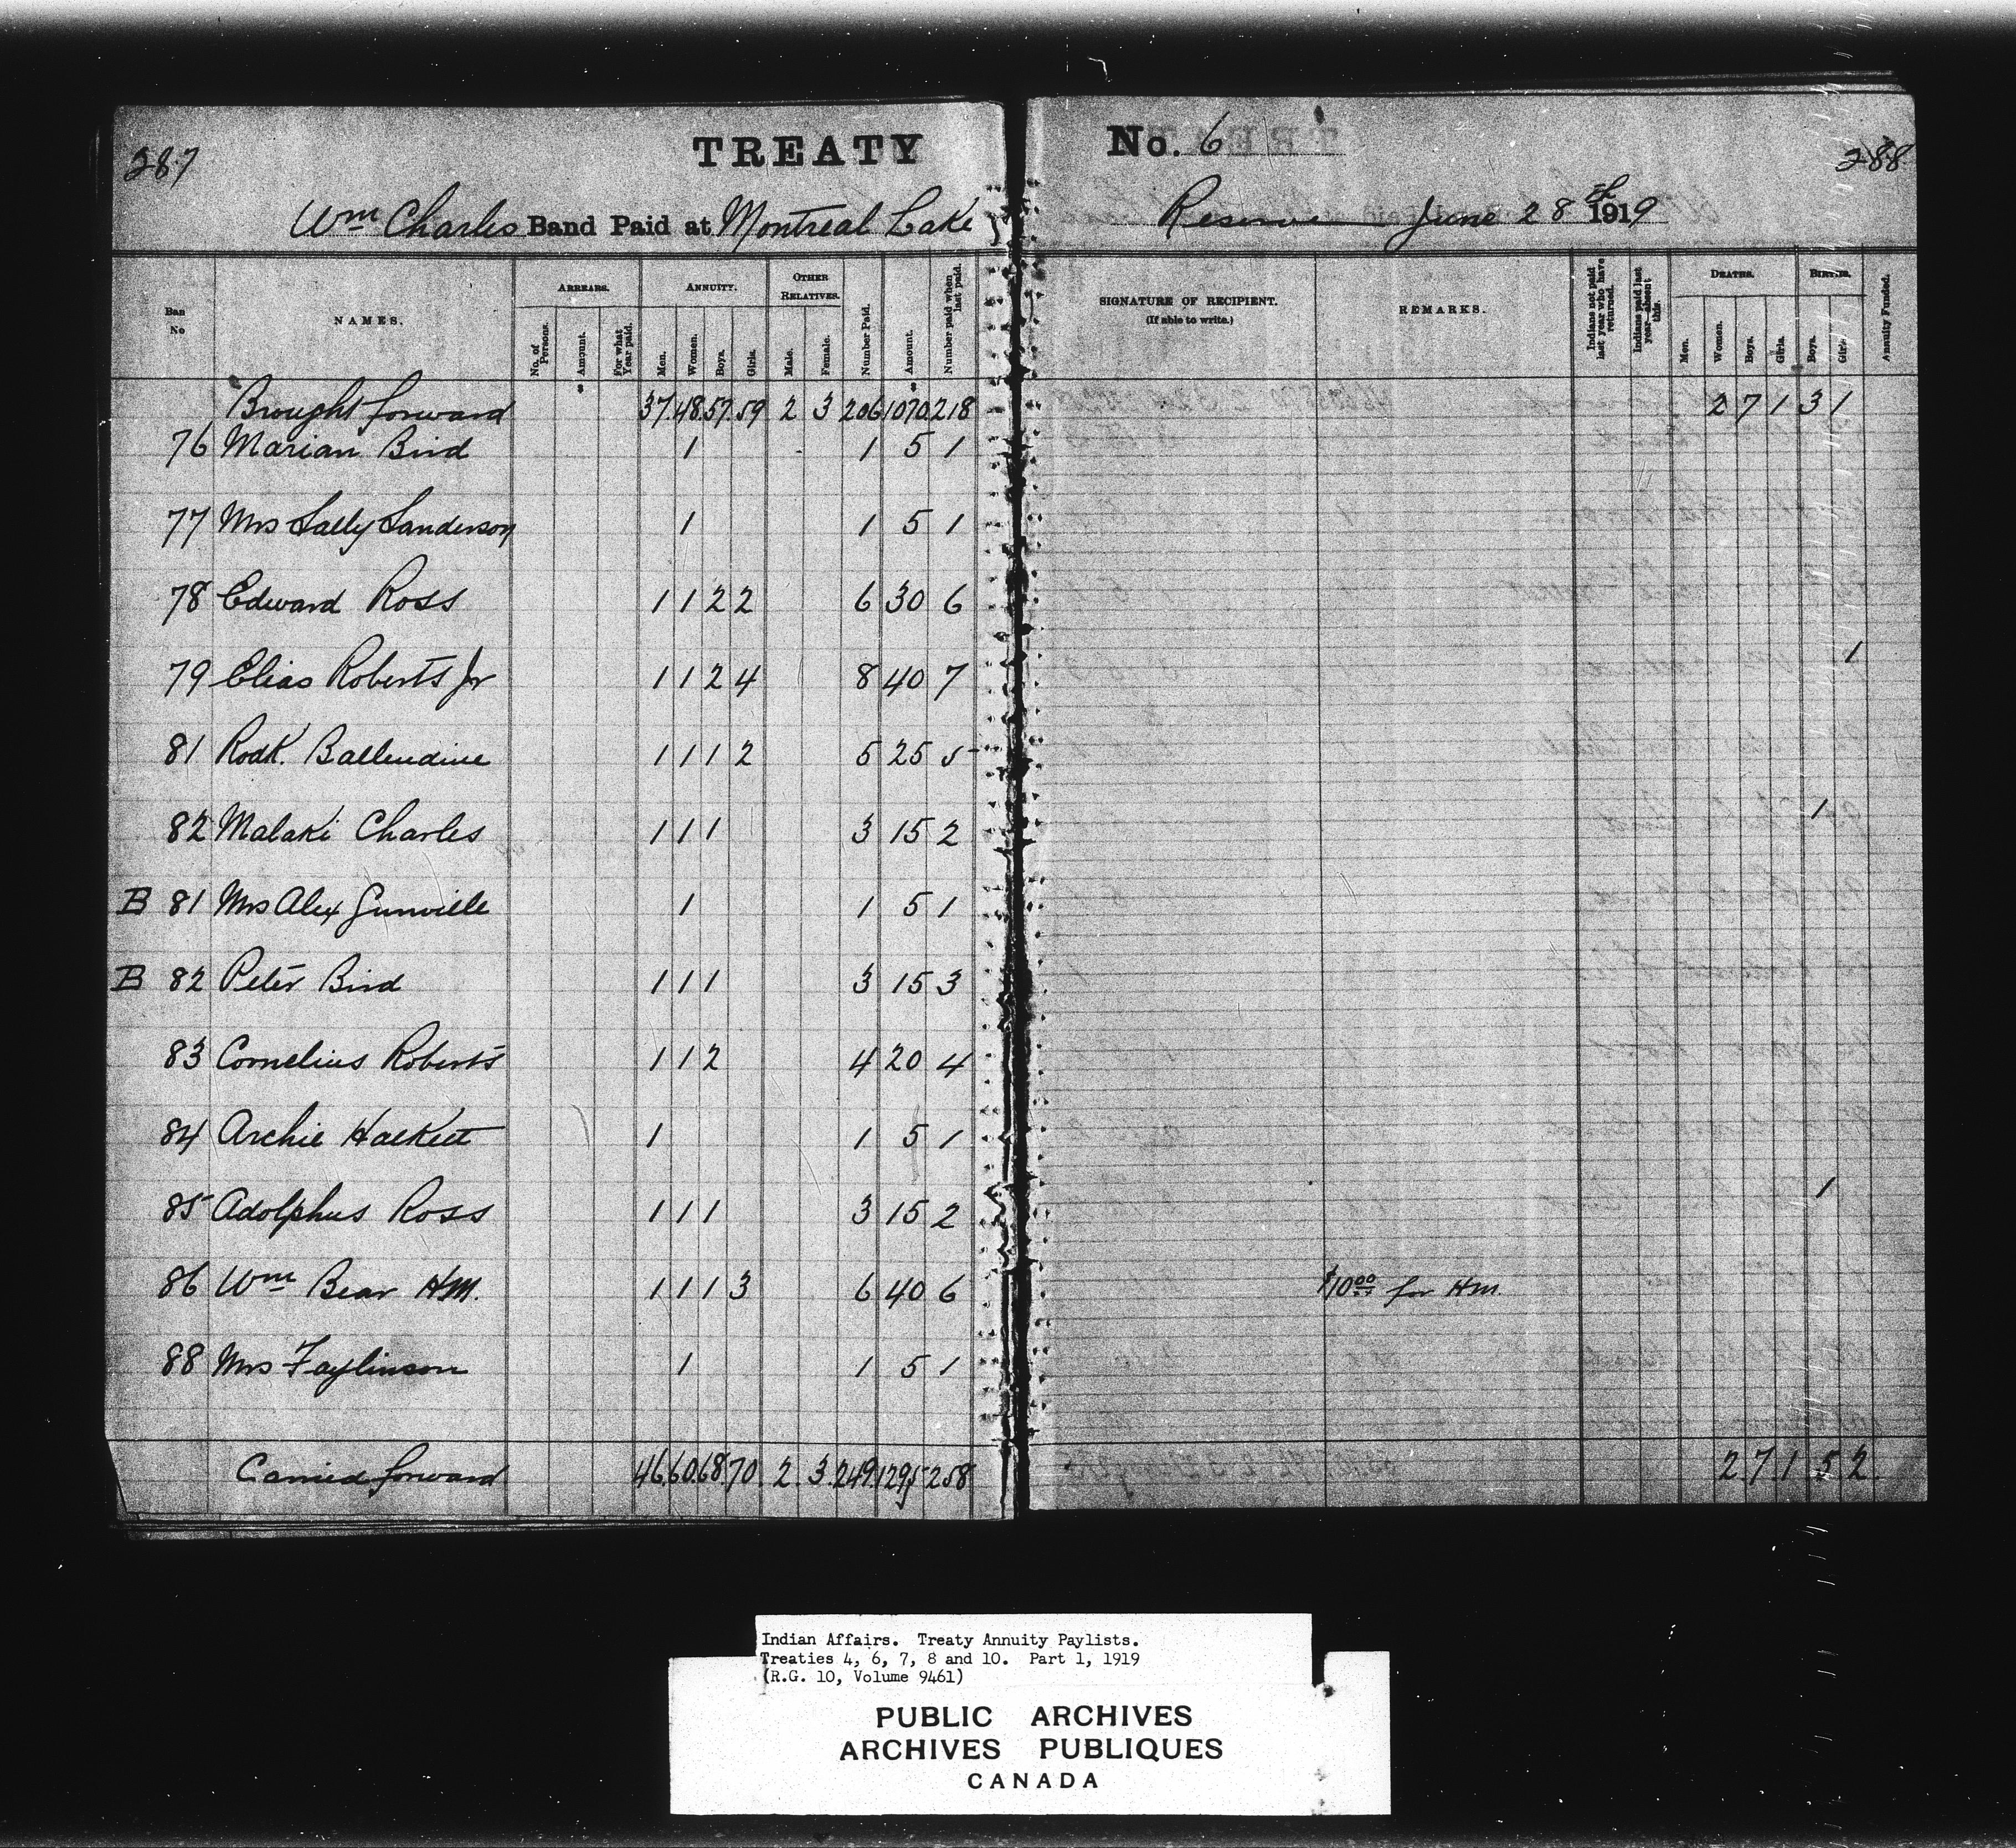 287 TREATY No. 6 288
Wm Charles Band Paid at Montreal Lake Reserve June 28th 1919
Ban No
NAMES.
ARREARS.
No. of Persons.
Amount.
For what Year paid.
ANNUITY.
Men.
Women.
Boys.
Girls.
OTHER RELATIVES.
Male.
Female.
Number Paid.
Amount.
Number paid when last paid.
SIGNATURE OF RECIPIENT.
(If able to write.)
REMARKS.
Indians not paid last year who have returned.
Indians paid last year—absent this.
DEATHS.
Men.
Women.
Boys.
Girls.
BIRTHS.
Boys.
Girls.
Annuity Funded.
Brought forward 37. 48. 57. 59 2 3 206 1070 218 2 7 1 3 1
76 Marian Bird 1 1 5 1
77 Mrs Sally Sanderson 1 1 5 1
78 Edward Ross 1 1 2 2 6 30 6
79 Elias Roberts Jr 1 1 2 4 8 40 7 1
81 Rodk. Ballendine 1 1 1 2 5 25 5
82 Malaki Charles 1 1 1 3 15 2 1
B 81 Mrs Alex Gunville 1 1 5 1
B 82 Peter Bird 1 1 1 3 15 3
83 Cornelius Roberts 1 1 2 4 20 4
84 Archie Halkett 1 1 5 1
85 Adolphus Ross 1 1 1 3 15 2 1
86 Wm Bear HM. 1 1 1 3 6 40 6 $10.00 for HM.
88 Mrs Faylinson 1 1 5 1
Carried forward 46. 60. 68. 70. 2. 3. 249. 1295 258 2 7 1 5 2.
Indian Affairs. Treaty Annuity Paylists.
Treaties 4, 6, 7, 8 and 10. Part 1, 1919
(R.G. 10, Volume 9461)
PUBLIC ARCHIVES
ARCHIVES PUBLIQUES
CANADA